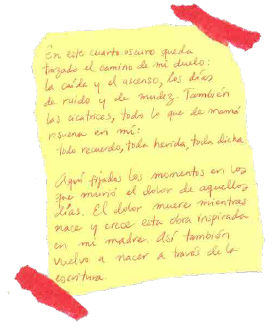 En este cuarto oscuro queda
trazado el camino de mi duelo:
la caída y el ascenso, los días
de ruido y de mudez. También
las cicatrices, todo lo que de mamá
resuena en mí:
todo recuerdo, toda herida, toda dicha.
Aquí fijados los momentos en los
que murió el dolor de aquellos
días. El dolor muere mientras
nace y crece esta obra inspirada
en mi madre. Así también
vuelvo a nacer a través de la
escritura.